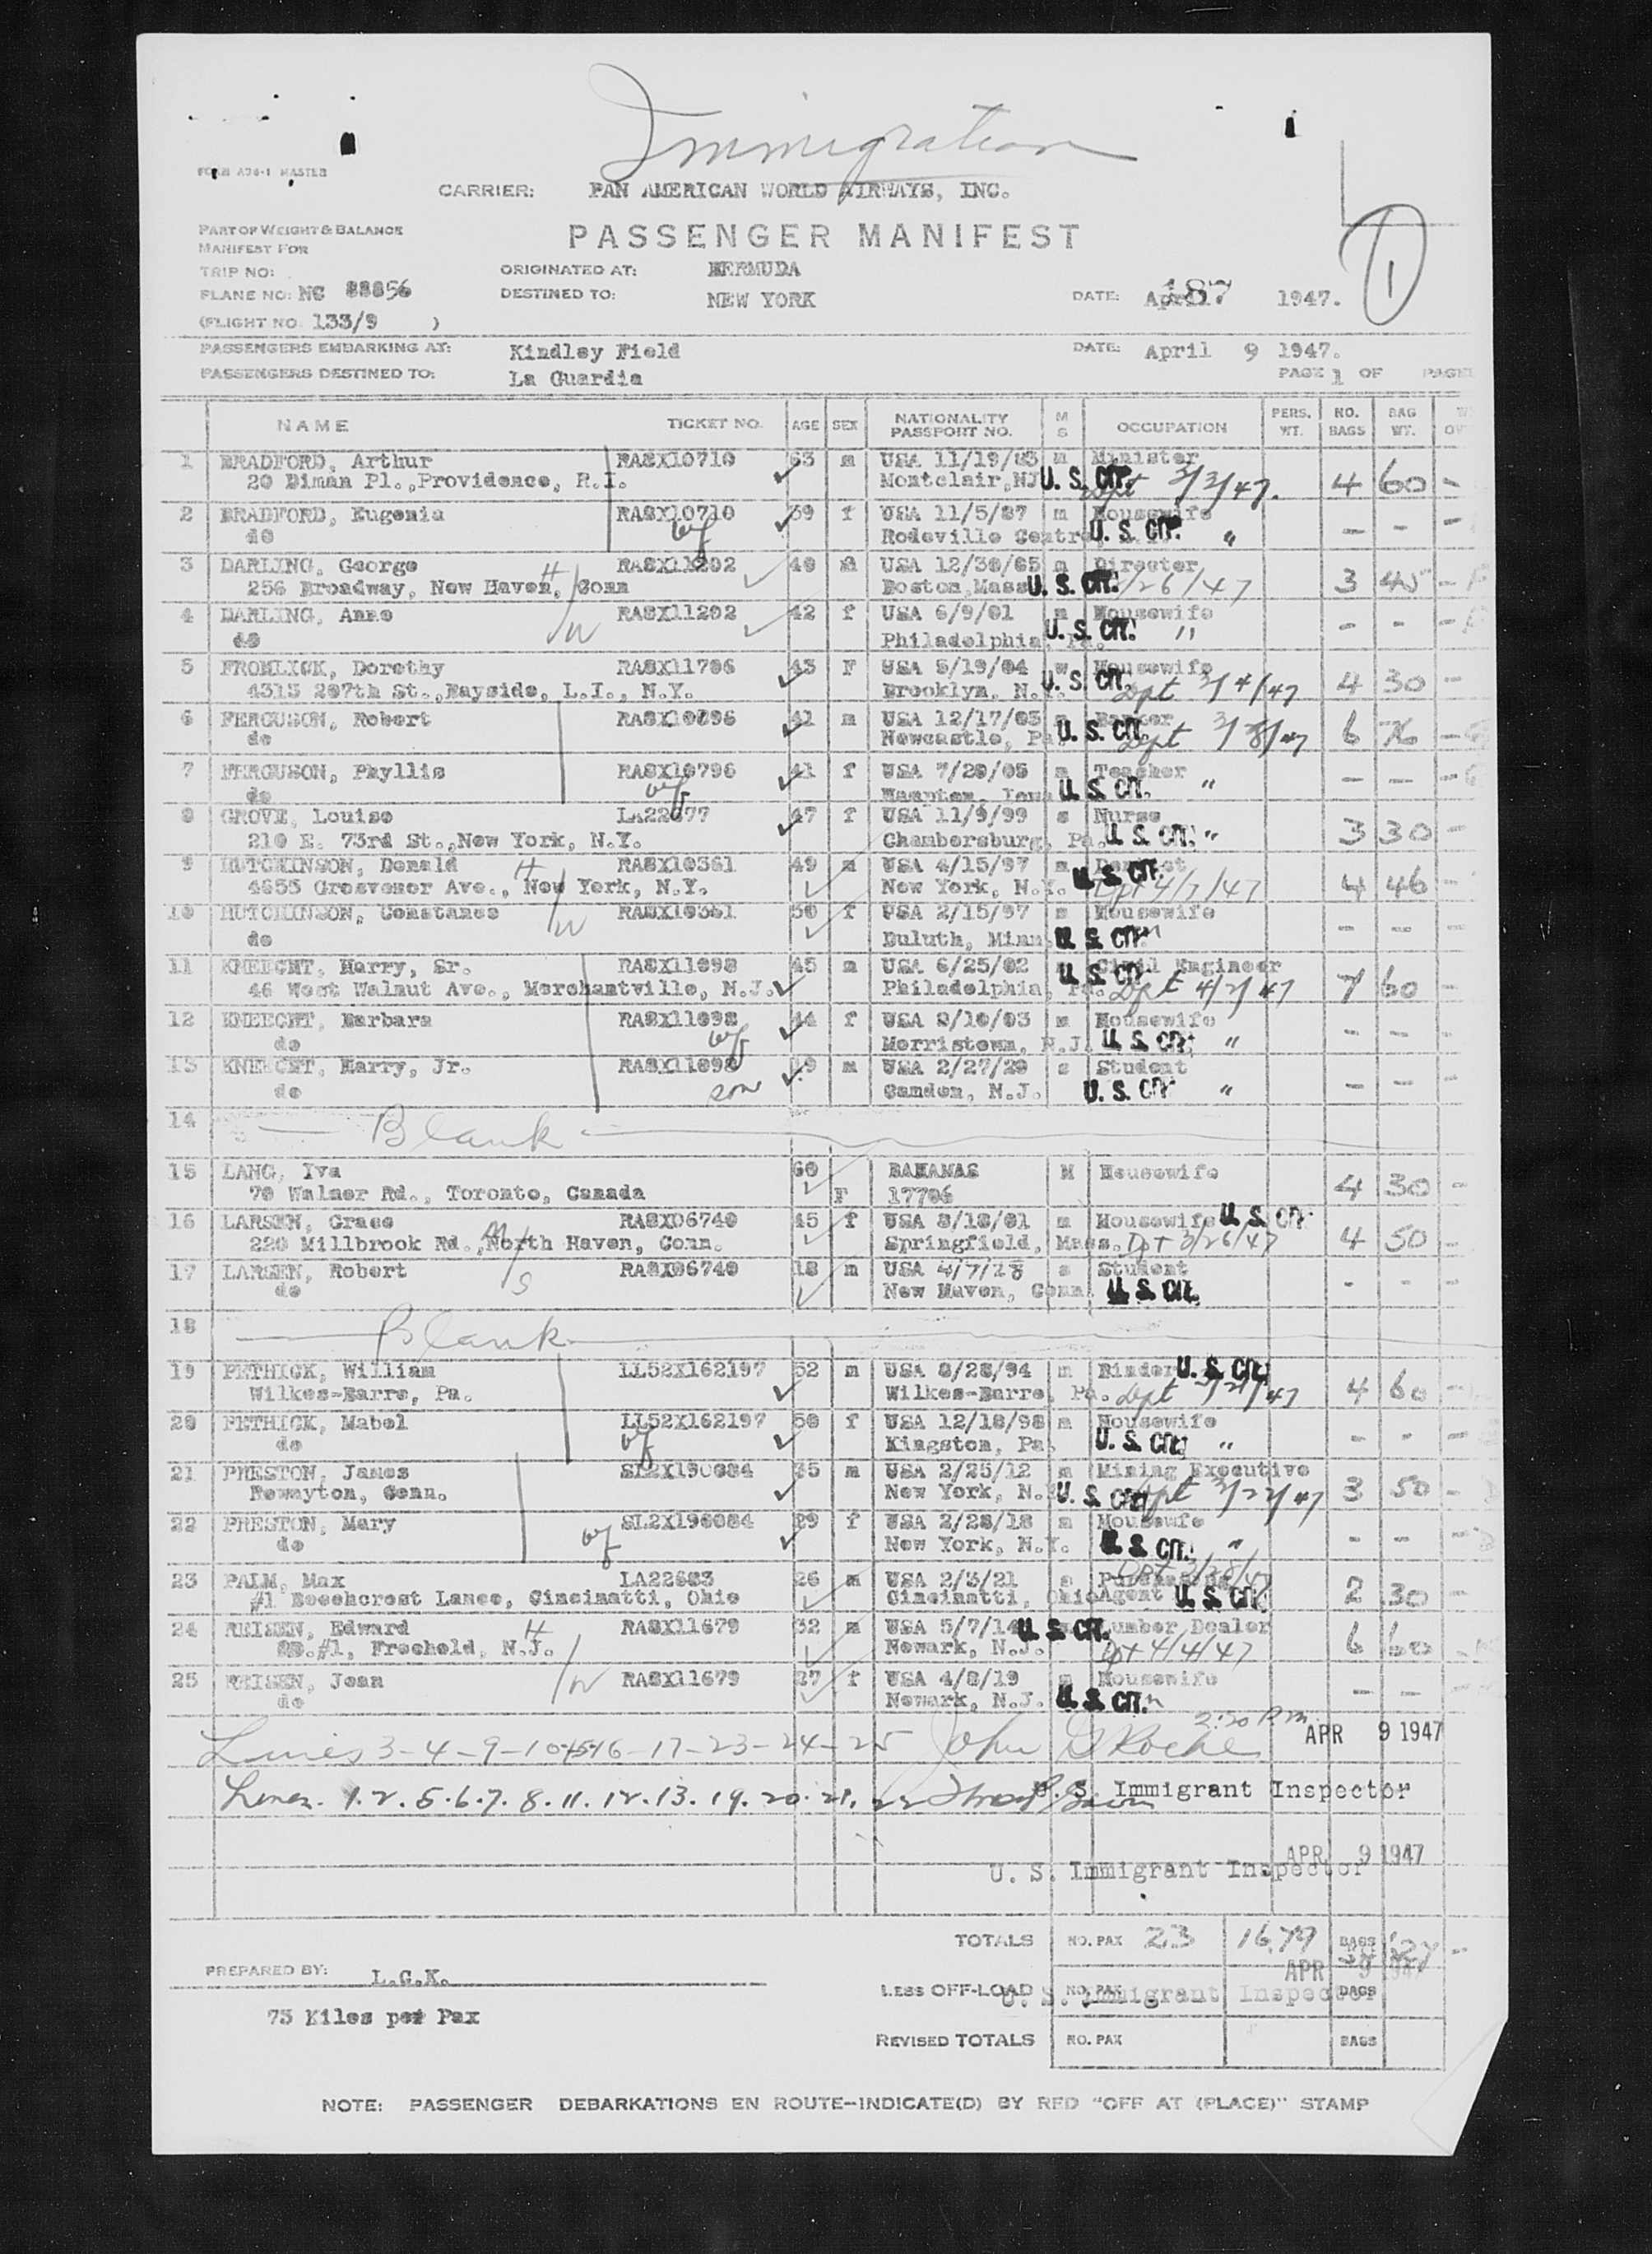 Immigration
FORM A74-1 MASTER
CARRIER: PAN AMERICAN WORLD AIRWAYS, INC.
PART OF WEIGHT & BALANCE
MANIFEST FOR
PASSENGER MANIFEST
TRIP NO: ORIGINATED AT: BERMUDA
PLANE NO: NC 88856 DESTINED TO: NEW YORK DATE: April 1947.
1
(FLIGHT NO 133/9 )
PASSENGERS EMBARKING AT: Kindley Field DATE: April 9 1947.
PASSENGERS DESTINED TO: La Guardia PAGE 1 OF PAGE
NAME TICKET NO. AGE SEX NATIONALITY PASSPORT NO. M S OCCUPATION PERS. WT. NO. BAGS BAG WT.
1 BRADFORD, Arthur RASX10710 63 m USA 11/19/83 m Minister
20 Diman Pl.,Providence, R.I. Montclair,NJ U. S. CIT. Dpt 3/3/47. 4 60 -
2 BRADFORD, Eugenia RASX10710 59 f USA 11/5/87 m Housewife
do wf Rodeville Centre U. S. CIT. " - - -
3 DARLING, George H RASX11202 40 m USA 12/30/05 m Director
256 Broadway, New Haven, Conn Boston,Mass U. S. CIT. 3/26/47 3 45 -
4 DARLING, Anne RASX11202 42 f USA 6/9/01 m Housewife
do W Philadelphia, Pa. U. S. CIT. " - - -
5 FROMLICK, Dorothy RASX11706 43 F USA 5/19/04 w Housewife
4313 207th St.,Bayside, L.I., N.Y. Brooklyn, N.Y. U. S. CIT. Dpt 3/4/47 4 30 -
6 FERGUSON, Robert RASX10896 41 m USA 12/17/05 m Banker
do Newcastle, Pa U. S. CIT. Dpt 3/8/47 6 76 -
7 FERGUSON, Phyllis RASX10796 41 f USA 7/20/05 m Teacher
do wf Hampton, Iowa U. S. CIT. " - - -
8 GROVE, Louise LA22677 47 f USA 11/9/99 s Nurse
210 E. 73rd St.,New York, N.Y. Chambersburg, Pa. U. S. CIT. " 3 30 -
9 HUTCHINSON, Donald H RASX10361 49 m USA 4/15/97 m Dentist
4655 Grosvenor Ave., New York, N.Y. New York, N.Y. U. S. CIT. Dpt 4/7/47 4 46 -
10 HUTCHINSON, Constance RASX10361 50 f USA 2/15/97 m Housewife
do W Duluth, Minn. U. S. CIT. " - - -
11 KNEECHT, Harry, Sr. RASX11098 45 m USA 6/25/02 Civil Engineer
46 West Walnut Ave., Merchantville, N.J. Philadelphia, Pa. U. S. CIT. Dpt 4/2/47 7 60 -
12 KNEECHT, Barbara RASX11098 44 f USA 9/10/03 m Housewife
do wf Morristown, N.J. U. S. CIT. " - - -
13 KNEECHT, Harry, Jr. RASX11098 19 m USA 2/27/28 s Student
do son Camden, N.J. U. S. CIT. " - - -
14 Blank
15 LANG, Iva 60 BAHAMAS M Housewife
70 Walmer Rd., Toronto, Canada F 17706 4 30 -
16 LARSEN, Grace RASX06740 45 f USA 8/18/01 m Housewife U. S. CIT.
220 Millbrook Rd.,North Haven, Conn. M Springfield, Mass. Dpt 3/26/47 4 50 -
17 LARSEN, Robert RASX06740 18 m USA 4/7/28 s Student
do S New Haven, Conn. U. S. CIT. - - -
18 Blank
19 PETHICK, William LL52X162197 52 m USA 8/28/94 m Binder U. S. CIT.
Wilkes-Barre, Pa. Wilkes-Barre, Pa. Dpt 3/21/47 4 60 -
20 PETHICK, Mabel LL52X162197 50 f USA 12/18/98 m Housewife
do wf Kingston, Pa. U. S. CIT. " - - -
21 PRESTON, James SL2X190084 35 m USA 2/25/12 m Mining Executive
Rowayton, Conn. New York, N.Y. U. S. CIT. Dpt 3/22/47 3 50 -
22 PRESTON, Mary SL2X190084 29 f USA 2/28/18 m Housewife
do wf New York, N.Y. U. S. CIT. " - - -
23 PALM, Max LA22683 26 m USA 2/3/21 s Purchasing Dpt 3/28/47
#1 Beechcrest Lance, Cincinatti, Ohio Cincinatti, Ohio Agent U. S. CIT. 2 30 -
24 REISEN, Edward H RASX11679 32 m USA 5/7/14 U. S. CIT. Lumber Dealer
RD.#1, Freehold, N.J. Newark, N.J. Dpt 4/4/47 6 60 -
25 REISEN, Jean RASX11679 27 f USA 4/8/19 m Housewife
do W Newark, N.J. U. S. CIT. " - - -
Lines 3-4-9-10-15-16-17-23-24-25 John G Roche 2:20 P.m. APR 9 1947
Lines. 1.2.5.6.7.8.11.12.13.19.20.21.22 U. S. Immigrant Inspector
APR 9 1947
U. S. Immigrant Inspector
TOTALS NO. PAX 23 1679 BAGS
PREPARED BY: L.G.K. APR 9 1947
LESS OFF-LOAD NO. PAX BAGS
U. S. Immigrant Inspector
75 Kilos per Pax
REVISED TOTALS NO. PAX BAGS
NOTE: PASSENGER DEBARKATIONS EN ROUTE-INDICATE(D) BY RED "OFF AT (PLACE)" STAMP